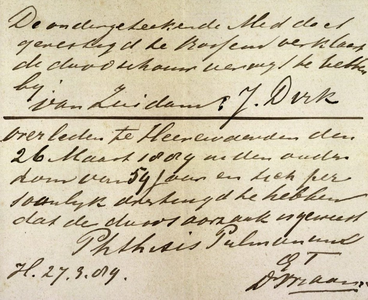 De ondergeteekende Med. doct
gevestigd te Rossum verklaart
de doodschouw verrigt te hebben
bij
van Zuidam, J. Dirk
overleden te Heerewaarden den
26 Maart 1889 in den ouder
dom van 54 jaar en zich per
soonlijk overtuigd te hebben
dat de doodsoorzaak is geweest
Phthisis Pulmonum
H. 27.3.89.